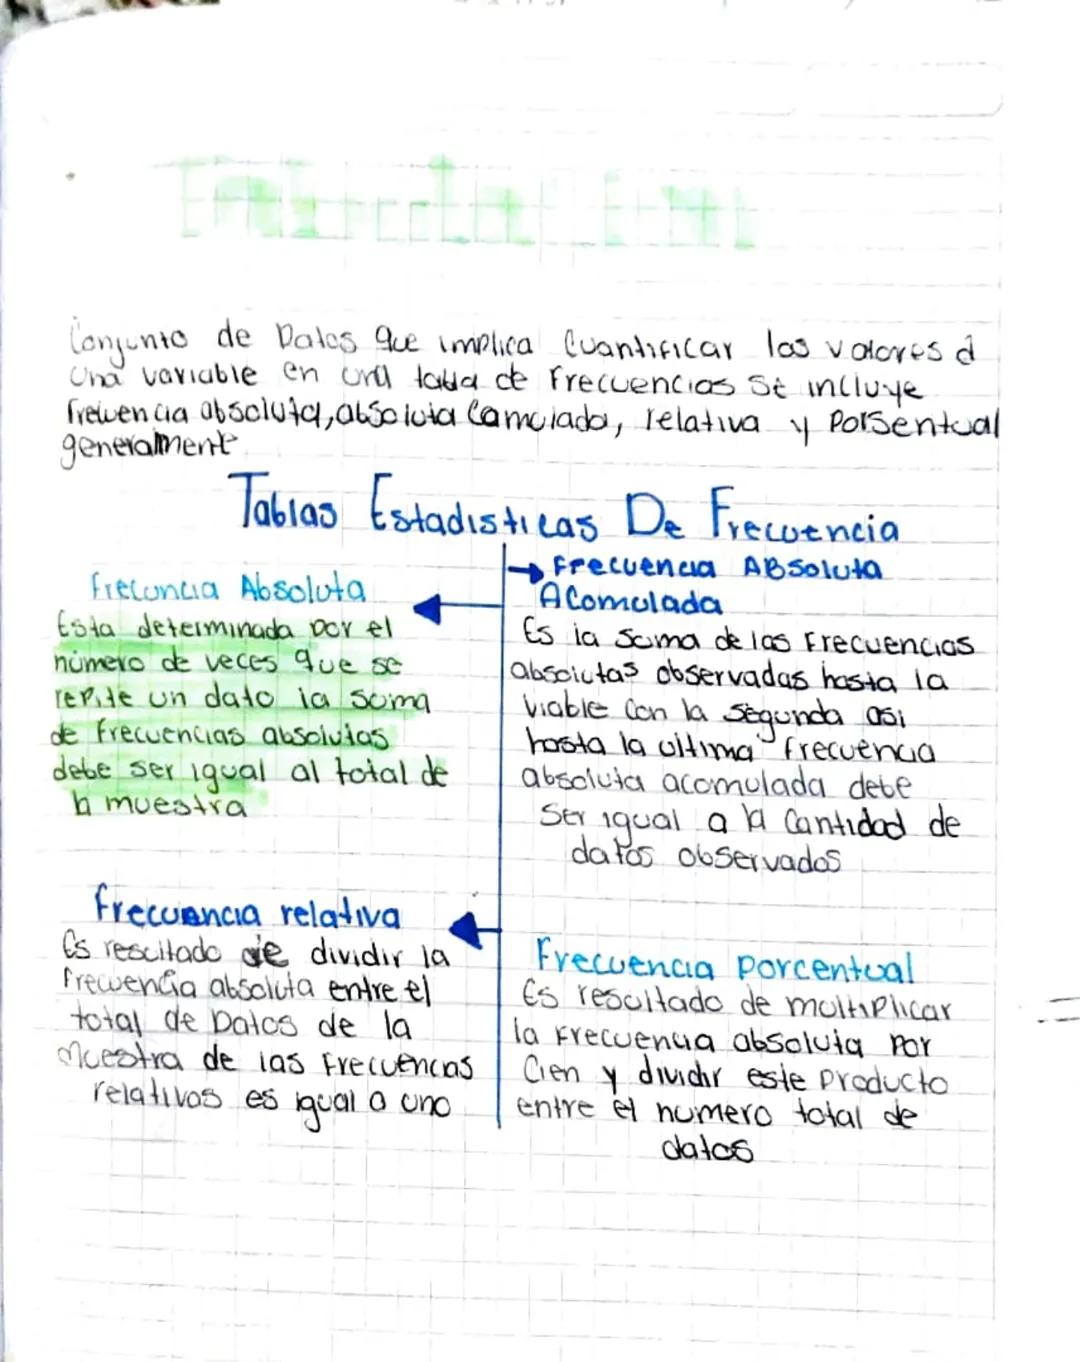 Conjunto de Datos que implica Cuantificar los valores d
una variable en una tabla de frecuencias se incluye
frecuencia absoluta, absoluta Camulada, relativa y Porsentual
generalment
Tablas Estadisticas De Frecuencia
Frecuencia Absoluta
Acomulada
Frecuncia Absoluta
Esta determinada por el
número de veces que se
repite un dato la soma
de frecuencias absolutas
debe ser igual al total de
la muestra
Es la soma de las frecuencias
absolutas observadas hasta la
viable con la segunda asi
hasta la ultima frecuencia
absoluta acomulada debe
ser igual a la Cantidad de
datos observados
frecuencia relativa
Es rescltado de dividir la
frecuencia absoluta entre el
total de Datos de la
Muestra de las frecuencas
relativas es igual a uno
Frecuencia Porcentual
Es resultado de multiplicar
la frecuencia absoluta por
Cien y dividir este Producto
entre el numero total de
datos